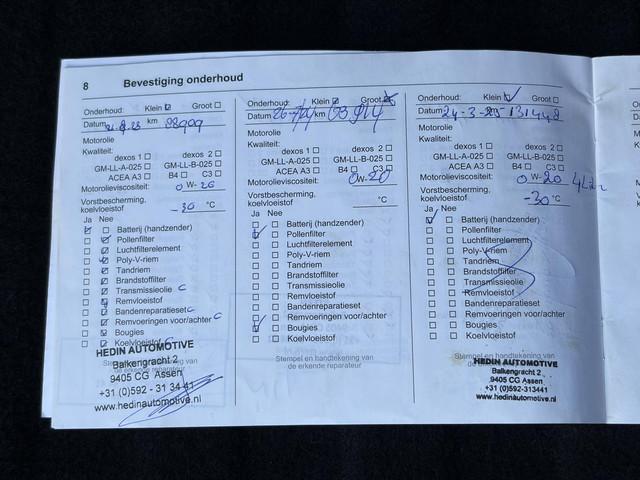 8 Bevestiging onderhoud
Onderhoud: Klein Groot
Datum km 98909
Motorolie
Kwaliteit:
dexos 1 dexos 2
GM-LL-A-025 GM-LL-B-025
ACEA A3 B4 C3
Motorolieviscositeit: 0 W-20
Vorstbescherming,
koelvloeistof -30 °C
Ja Nee
Batterij (handzender)
Pollenfilter
Luchtfilterelement
Poly-V-riem
Tandriem
Brandstoffilter
Transmissieolie C
Remvloeistof
Bandenreparatieset C
Remvoeringen voor/achter C
Bougies
Koelvloeistof C
Stempel en handtekening van
de erkende reparateur
HEDIN AUTOMOTIVE
Balkengracht 2
9405 CG Assen
+31 (0)592 - 31 34 41
www.hedinautomotive.nl
Onderhoud: Klein Groot
Datum km
Motorolie
Kwaliteit:
dexos 1 dexos 2
GM-LL-A-025 GM-LL-B-025
ACEA A3 B4 C3
Motorolieviscositeit: 0W-20
Vorstbescherming,
koelvloeistof °C
Ja Nee
Batterij (handzender)
Pollenfilter
Luchtfilterelement
Poly-V-riem
Tandriem
Brandstoffilter
Transmissieolie
Remvloeistof
Bandenreparatieset
Remvoeringen voor/achter
Bougies
Koelvloeistof
Stempel en handtekening van
de erkende reparateur
Onderhoud: Klein Groot
Datum 24-3-25 131448
Motorolie
Kwaliteit:
dexos 1 dexos 2
GM-LL-A-025 GM-LL-B-025
ACEA A3 B4 C3
Motorolieviscositeit: 0 W-20
Vorstbescherming,
koelvloeistof -30 °C
Ja Nee
Batterij (handzender)
Pollenfilter
Luchtfilterelement
Poly-V-riem
Tandriem
Brandstoffilter
Transmissieolie
Remvloeistof
Bandenreparatieset
Remvoeringen voor/achter
Bougies
Koelvloeistof
HEDIN AUTOMOTIVE
Balkengracht 2
9405 CG Assen
+31 (0)592-313441
www.hedinautomotive.nl